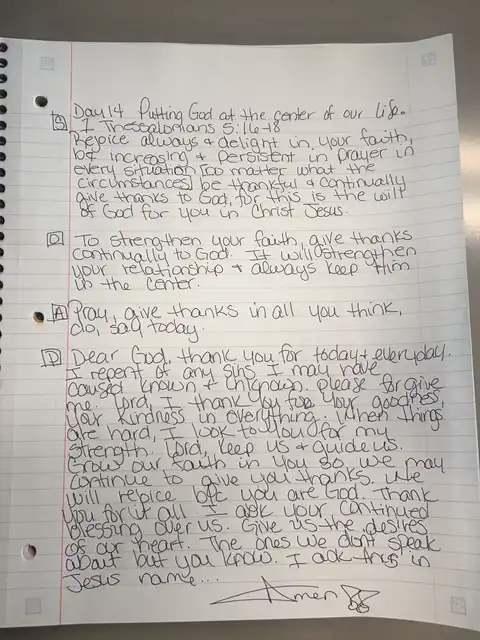 Day 14 Putting God at the center of our life.
S I Thessalonians 5:16-18
Rejoice always + delight in your faith,
be increasing + persistent in prayer in
every situation [no matter what the
circumstances] be thankful + continually
give thanks to God, for this is the will
of God for you in Christ Jesus.
O To strengthen your faith, give thanks
continually to God. It will strengthen
your relationship + always keep Him
in the center.
A Pray, give thanks in all you think,
do, say today.
D Dear God, thank you for today + everyday.
I repent of any sins I may have
caused known + unknown. Please forgive
me. Lord, I thank you for your goodness,
your kindness in everything. When things
are hard, I look to you for my
strength. Lord, keep us + guide us.
Grow our faith in you so, we may
continue to give you thanks. We
will rejoice b/c you are God. Thank
you for it all I ask your continued
blessing over us. Give us the desires
of our heart. The ones we don't speak
about but you know. I ask this in
Jesus name...
Amen